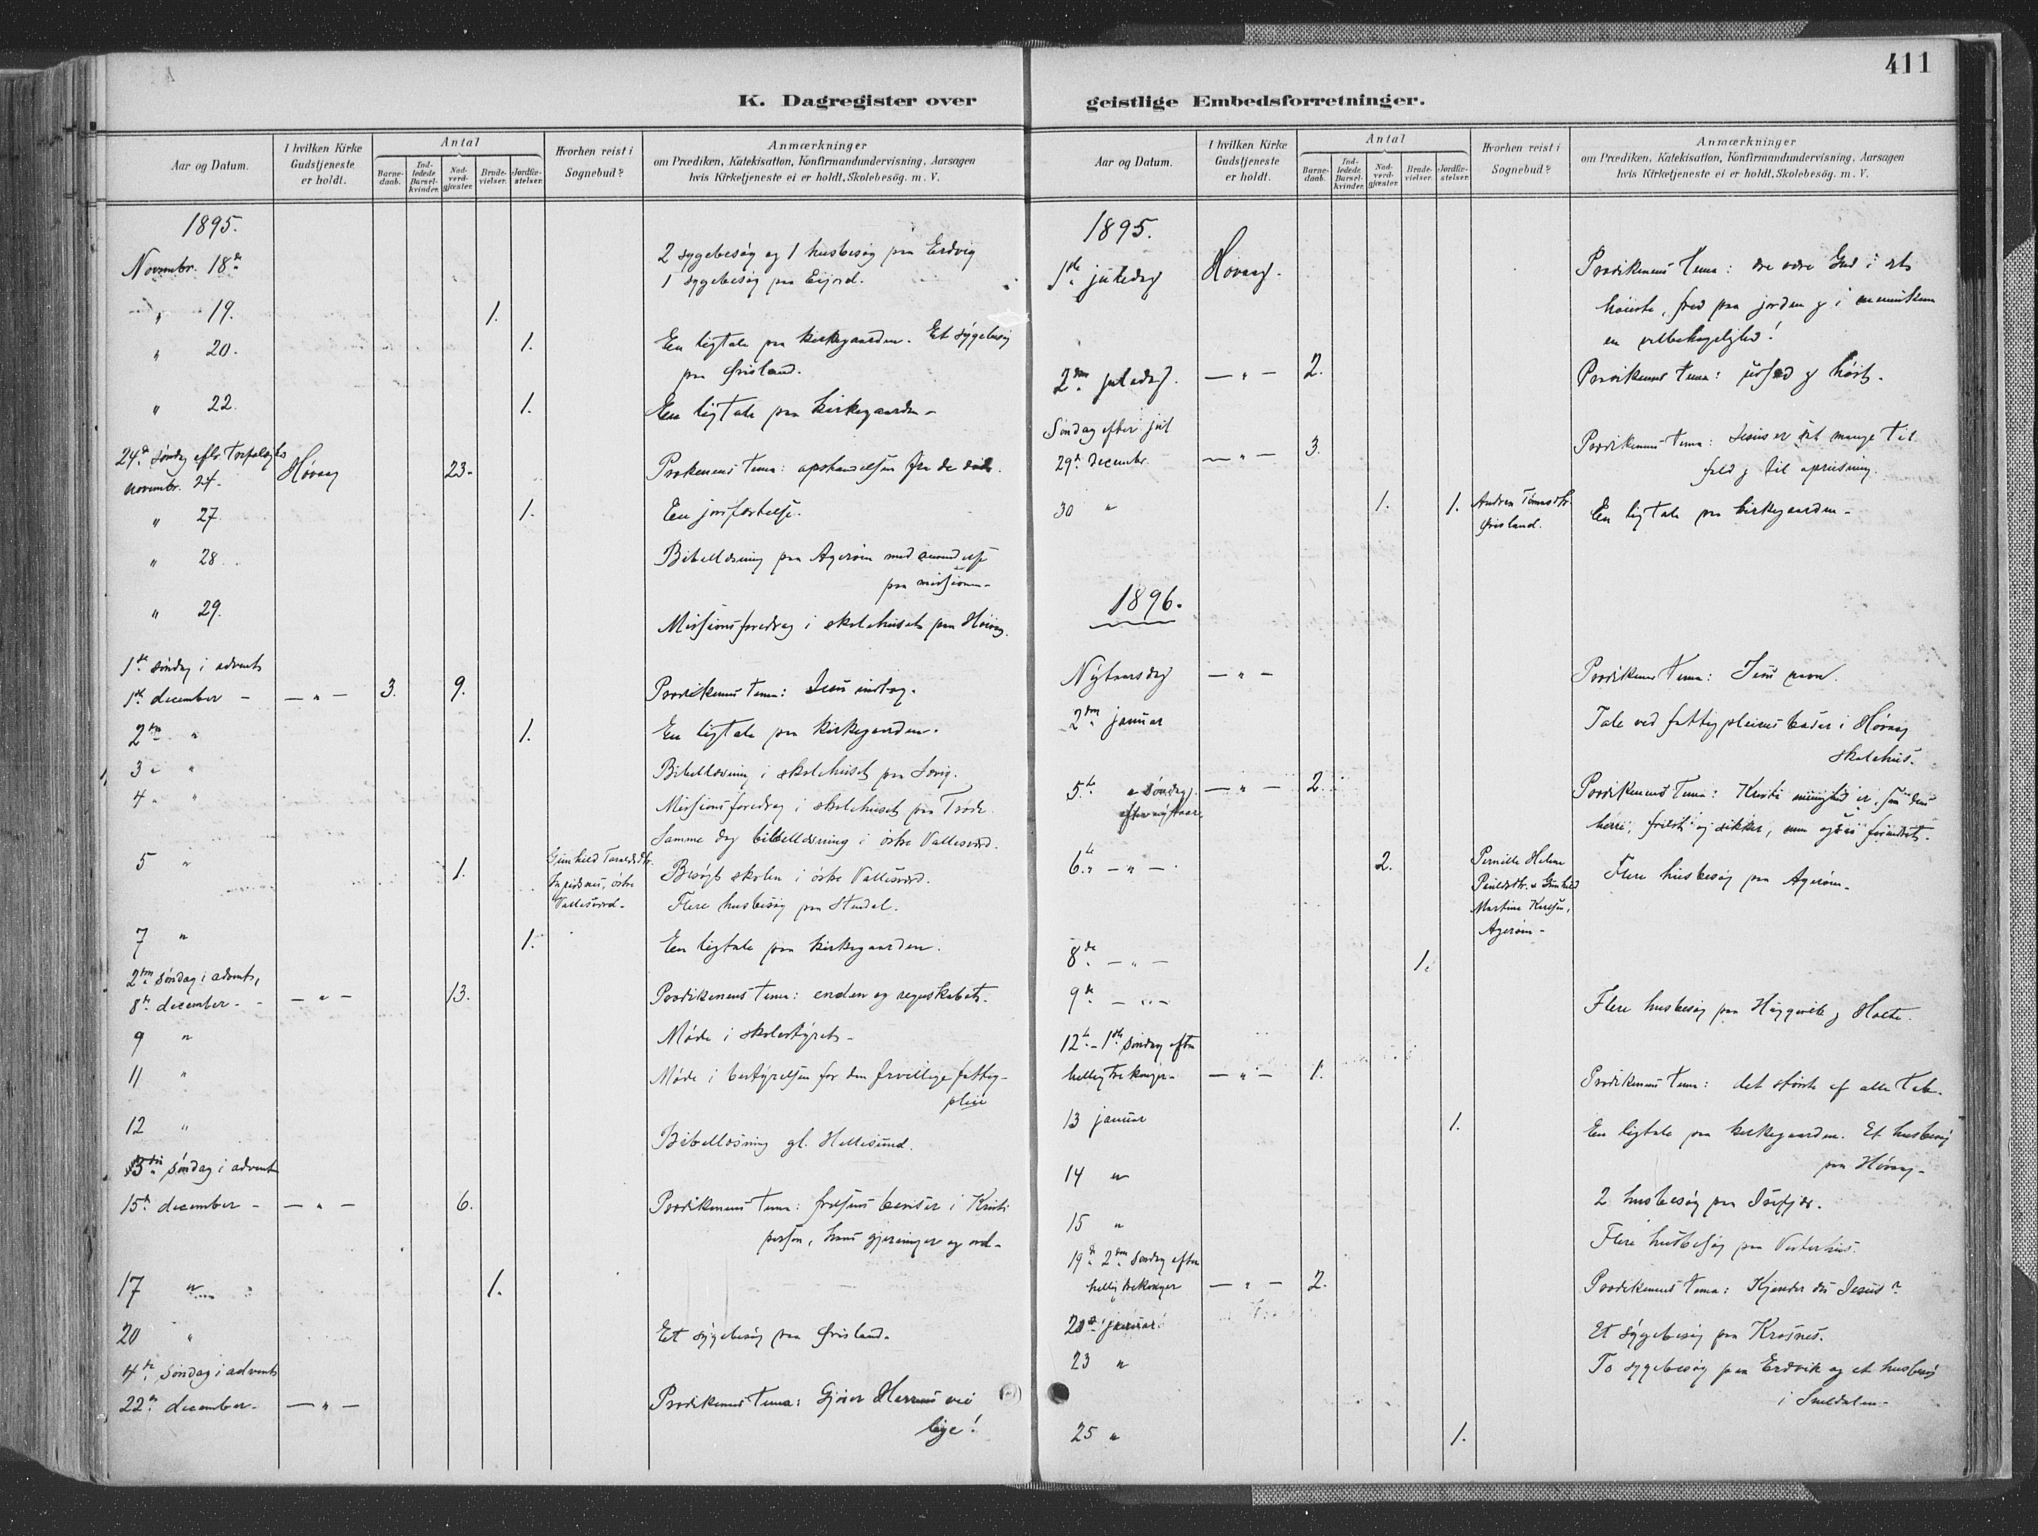 411
K. Dagregister over
Aar og Datum.
I hvilken Kirke Gudstjeneste er holdt.
Antal
Barne-daab.
Ind-ledede Barsel-kvinder.
Nad-verd-gjæster.
Brude-vielser.
Jordfæ-stelser.
Hvorhen reist i Sognebud?
Anmærkninger
om Prædiken, Katekisation, Konfirmandundervisning, Aarsagen
hvis Kirketjeneste ei er holdt, Skolebesøg. m. V.
1895.
Novembr. 18de 2 sygebesøg og 1 husbesøg paa Erdvig
1 sygebesøg paa Eijord.
" 19. 1.
" 20. 1. En ligtale paa kirkegaarden. Et sygebesøg
paa Øvisland.
" 22. 1. En ligtale paa kirkegaarden -
24de søndag eftr.
novembr. 24. Høvaag 23. tema: opstandelsen fra de døde.
" 27. 1. En jordfæstelse.
" 28. Bibellæsning paa Agerøen med
paa missionen -
" 29. Missionsforedrag i skolehuset paa Høvaag.
1ste søndag i advent
1ste december - — " — 3. 9. Prædikenens tema: Jesu indtog.
2den " 1. En ligtale paa kirkegaarden.
3 " Bibellæsning i skolehuset paa
4 " Missionsforedrag i skolehuset paa
Samme dag bibellæsning i østre Vallesværd.
5 " 1. Gunhild østre Vallesværd - Besøgt skolen i østre Vallesværd.
Flere husbesøg paa Stedal.
7 " 1. En ligtale paa kirkegaarden.
2den søndag i advent,
8de december - — " — 13. Prædikenens tema: enden og regnskabet.
9 " Møde i skolestyret -
11 " Møde i bestyrelsen for den frivillige fattig-
pleie
12 " Bibellæsning gl. Hellesund.
3die søndag i advent
15de december - — " — 6. Prædikenens tema: frelsens beviser i Kristi
person, hans gjerninger og ord -
17 " 1.
20 " Et sygebesøg paa Øvisland.
4de søndag i advent
22de december - — " — Prædikenens tema: Gjører Herrens vei
lige!
geistlige Embedsforretninger.
Aar og Datum.
I hvilken Kirke Gudstjeneste er holdt.
Antal
Barne-daab.
Ind-ledede Barsel-kvinder.
Nad-verd-gjæster.
Brude-vielser.
Jordfæ-stelser.
Hvorhen reist i Sognebud?
Anmærkninger
om Prædiken, Katekisation, Konfirmandundervisning, Aarsagen
hvis Kirketjeneste ei er holdt, Skolebesøg. m. V.
1895.
1ste juledag Høvaag. Prædikenens tema: ære være Gud i det
høieste, fred paa jorden og i mennesken
en velbehagelighed!
2den juledag. — " — 2. Prædikenens tema: og
Søndag efter jul
29de decembr. — " — 3. Prædikenens tema: Jesus er sat mange til
fald og til opreisning.
30 " 1. 1. Andrea Øvisland. En ligtale paa kirkegaarden -
1896.
Nytaarsdag — " — Prædikenens tema: Jesu navn.
2den januar Tale ved fattigpleiens basar i Høvaag
skolehus.
5te " søndag efter nytaar — " — 2. Prædikenens tema: Kristi menighed er, som dens
herre, frelst og sikker, men ogsaa
6te — " — 2. Pernille Helene & Gunhild Martine Agerøen - Flere husbesøg paa Agerøen -
8de — " — 1.
9de — " — Flere husbesøg paa og Holte.
12te - 1ste søndag efter
helligtrekonger - — " — 1. Prædikenens tema: det største af alle tab -
13 januar 1. En ligtale paa kirkegaarden. Et husbesøg
paa Høvaag -
14 " 2 husbesøg paa Isefjær.
15 " Flere husbesøg paa Vesterhus.
19de 2den søndag efter
helligtrekonger — " — 2. Prædikenens tema: Kjender du Jesus?
januar Et sygebesøg paa Krosnes.
23 " To sygebesøg paa Erdvik og et husbesøg
i
25 " 1.